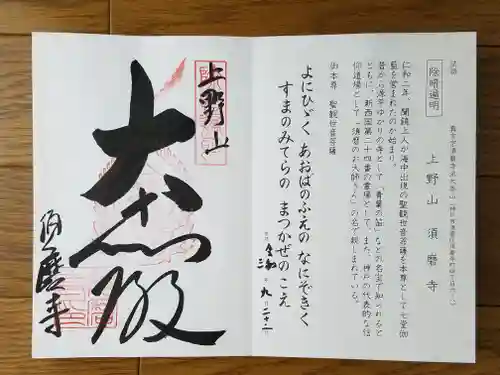 法語
陰晴遍明
真言宗須磨寺派大本山
上野山 須磨寺
仁和二年、聞鏡上人が海中出現の聖観世音菩薩を本尊として七堂伽
藍を営まれたのが始まり。
昔から源平ゆかりの寺として「青葉の笛」などの名宝で知られると
ともに、新西国第二十四番の霊場として、また、神戸の代表的な信
仰道場として「須磨のお大師さん」の名で親しまれている。
御本尊 聖観世音菩薩
よにひゞく あおばのふえの なにぞきく
すまのみてらの まつかぜのこえ
令和 三 年 九 月 二十二
上野山
大悲殿
須磨寺